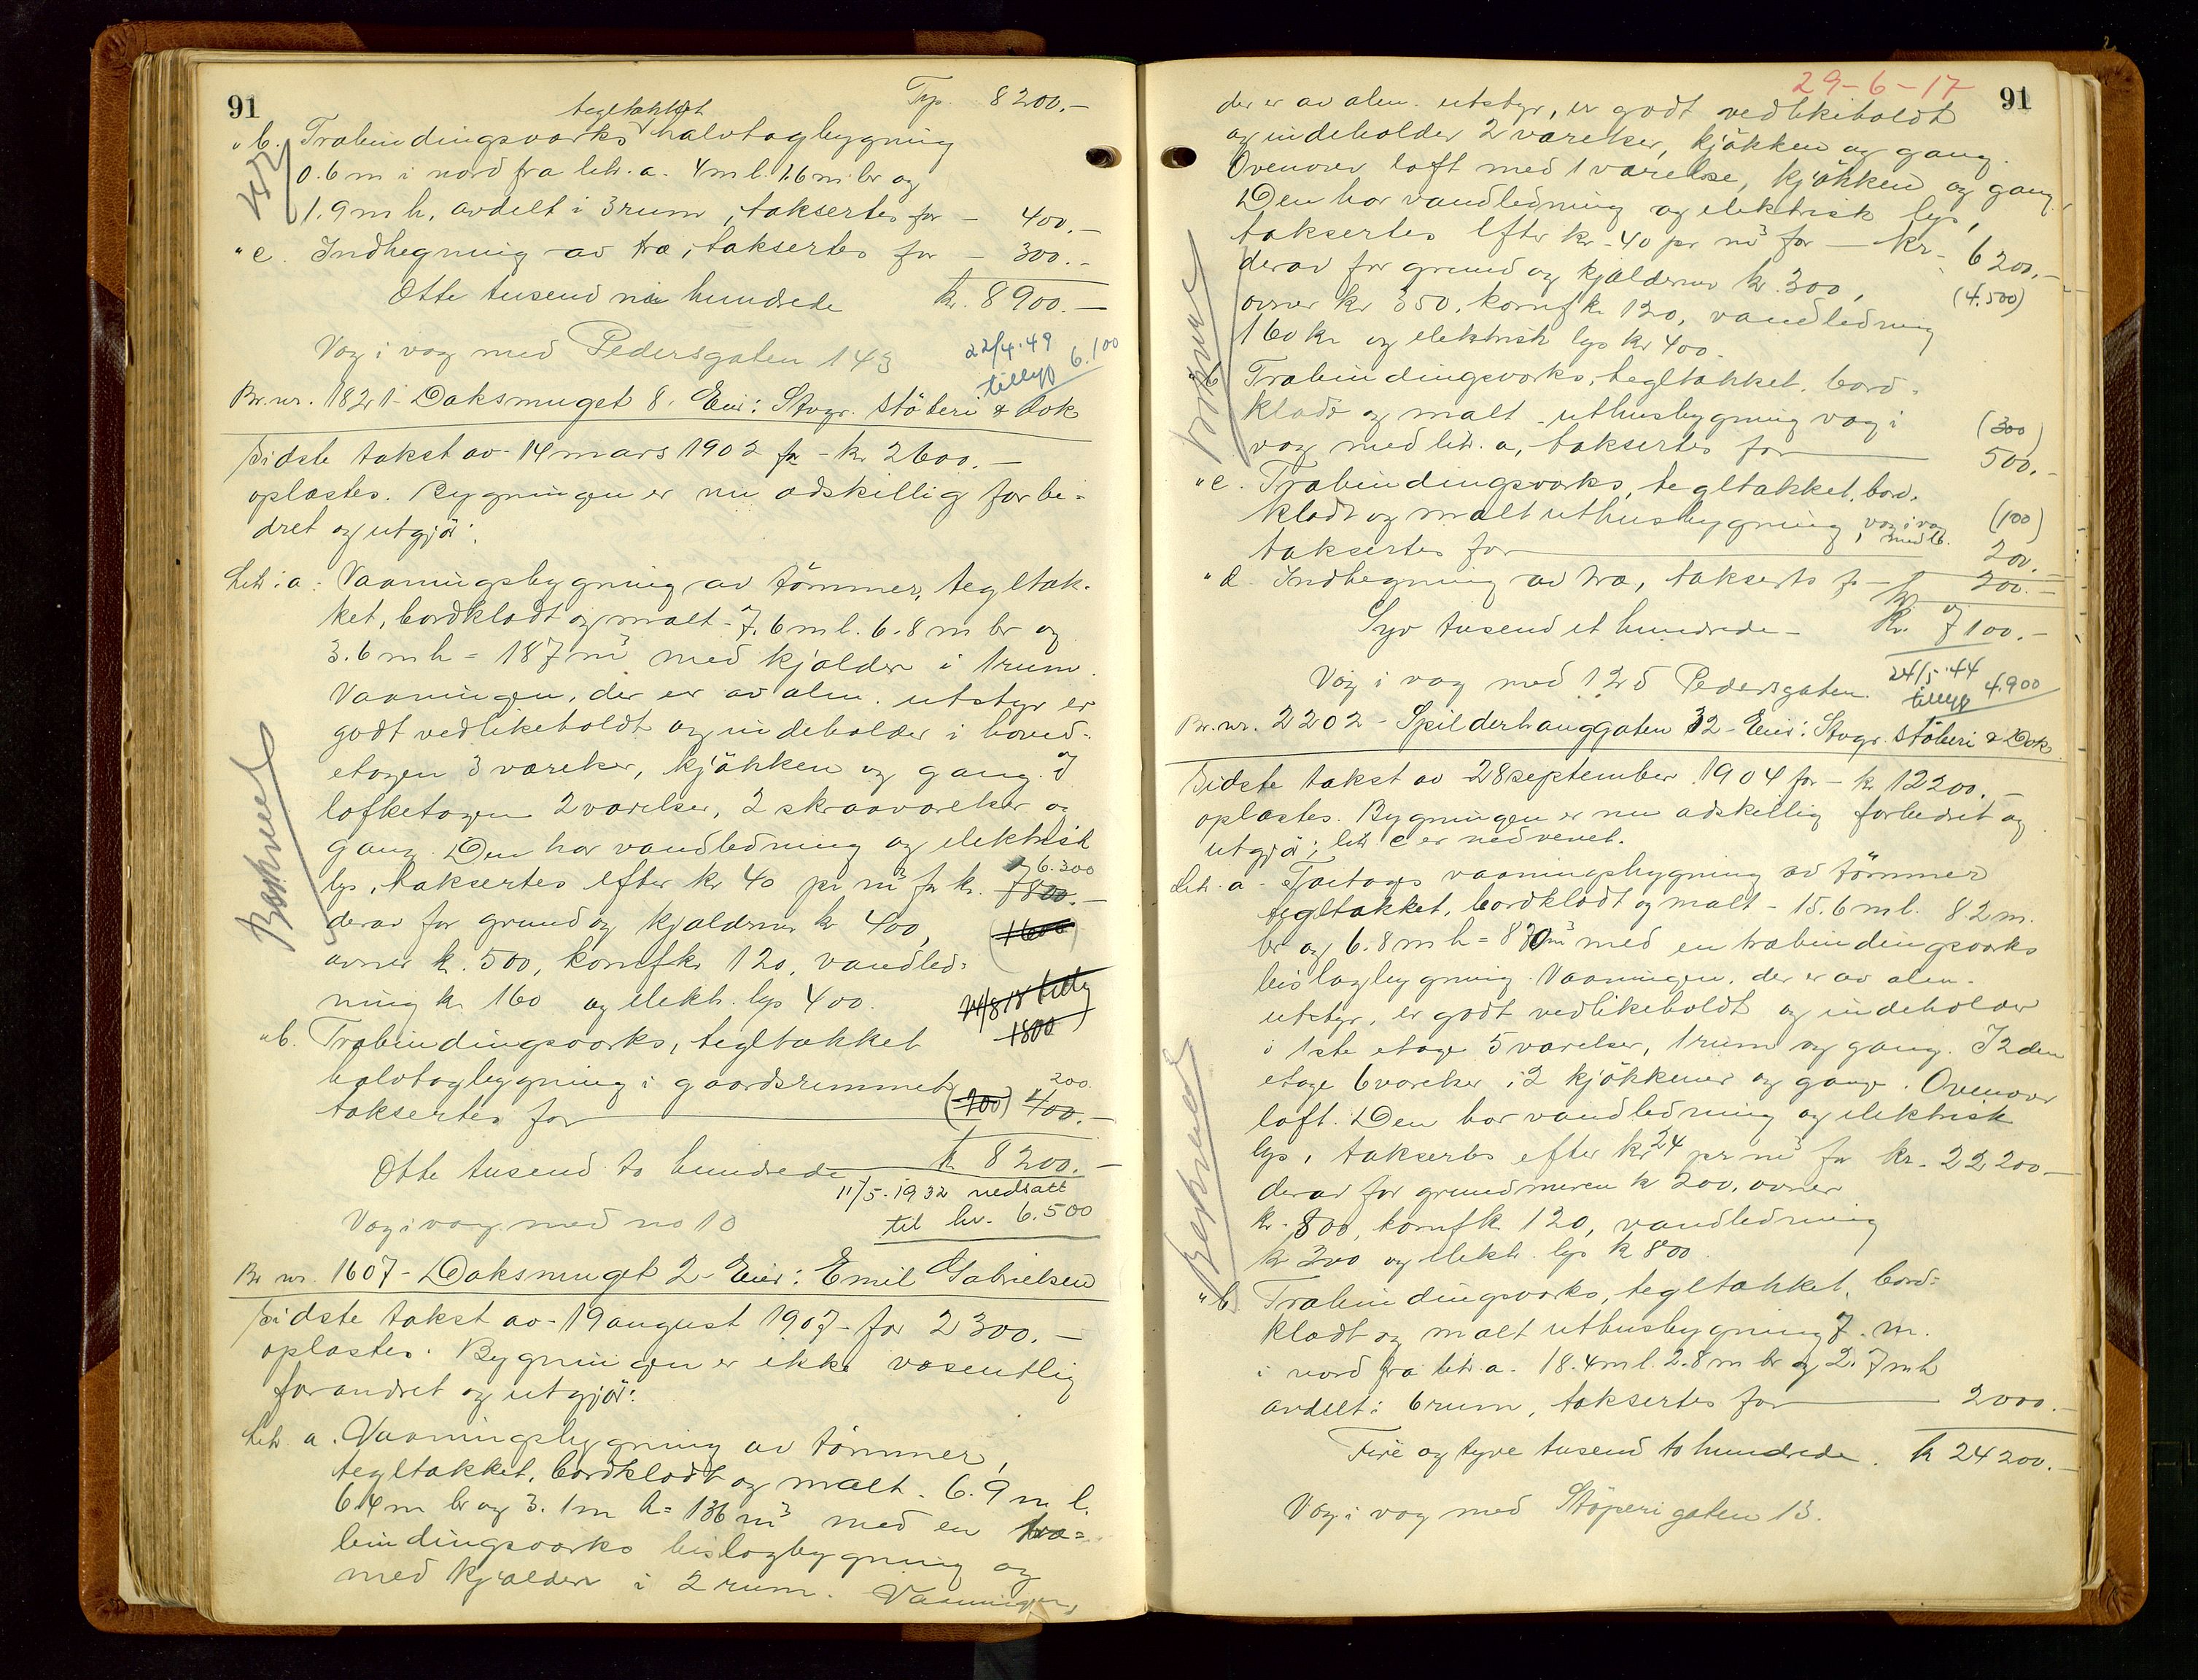 91
Trp. 8200.-
tegltækket
"b. Træbindingsværks halvtagbygning
0.6 m i nord fra litr. a. 4 m l. 1.6 m br og
1.9 m h, avdelt i 3 rum, taksertes for - 400.-
"c. Indhegning av træ, taksertes for - 300.-
Otte tusend ni hundrede kr. 8900.-
Væg i væg med Pedersgaten 143
22/4-49
tillegg 6.100
Br. nr. 1821 - Doksmuget 8. Eier: Stvgr. Stöberi & Dok
Sidste takst av - 14 mars 1902 for - kr 2600.-
oplæstes. Bygningen er nu adskillig forbe=
dret og utgjör:
Litr. a. Vaaningsbygning av tömmer, tegltæk-
ket, bordklædt og malt - 7.6 m l. 6.8 m br og
3.6 m h = 187 m³ med kjælder i 1 rum.
Vaaningen, der er av alm. utstyr er
godt vedlikeholdt og indeholder i hoved=
etagen 3 værelser, kjökken og gang. I
loftetagen 2 værelser, 2 skraaværelser og
gang. Den har vandledning og elektrisk
lys, taksertes efter kr 40 pr m³ for kr. 7800.-
6.300
derav for grund og kjælderm kr 400,
(1600)
ovner kr. 500, komf kr 120, vandled=
ning kr 160 og elektr. lys 400.
14/8 18 tillæg
1800
"b. Træbindingsværks, tegltækket
halvtagbygning i gaardsrummet
taksertes for (200) 400.-
200
Otte tusend to hundrede kr 8200.-
11/5-1932 nedsatt
til kr. 6.500
Væg i væg med no 10
Beskreved
Br nr. 1607 - Doksmuget 2 - Eier: Emil Gabrielsen
Sidste takst av - 19 august 1907 - for 2300.-
oplæstes. Bygningen er ikke væsentlig
forandret og utgjör:
Litr a. Vaaningsbygning av tömmer,
tegltækket, bordklædt og malt. 6.9 m l.
6.4 m br og 3.1 m h = 136 m³ med en træ=
bindingsværks bislagbygning og
med kjælder i 2 rum. Vaaningen,
29-6-17
91
der er av alm. utstyr, er godt vedlikeholdt
og indeholder 2 værelser, kjökken og gang.
Ovenover loft med 1 værelse, kjökken og gang.
Den har vandledning og elektrisk lys,
taksertes efter kr - 40 pr m³ for - kr - 6200.-
(4.500)
derav for grund og kjælderm kr. 300,
ovner kr 350, komf kr 120, vandledning
160 kr og elektrisk lys kr 400.
"b. Træbindingsværks, tegltækket, bord=
klædt og malt uthusbygning væg i
væg med litr. a, taksertes for 500.-
(300)
"c. Træbindingsværks, tegltækket, bord=
klædt og malt uthusbygning, væg i væg
med b. (100)
taksertes for 200.-
"d. Indhegning av træ, taksertes for - 200.-
Syv tusend et hundrede - Kr. 7100.-
Væg i væg med 125 Pedersgaten.
24/5-44
tillegg 4.900
Beskreved
Br. nr. 2202 - Spilderhauggaten 32 - Eier: Stvgr. Stöberi & Dok
Sidste takst av 28 september 1904 for - kr 12200.-
oplæstes. Bygningen er nu adskillig forbedret og
utgjör; litr c er nedrevet.
Litr. a - Toetages vaaningsbygning av tömmer
tegltækket, bordklædt og malt - 15.6 m l. 8.2 m.
br og 6.8 m h = 870 m³ med en træbindingsværks
bislagbygning. Vaaningen, der er av alm.
utstyr, er godt vedlikeholdt og indeholder
i 1ste etage 5 værelser, 1 rum og gang. I 2den
etage 6 værelser, 2 kjökkener og gange. Ovenover
loft. Den har vandledning og elektrisk
lys, taksertes efter kr 24 pr m³ for kr. 22200.-
derav for grundmuren kr 200, ovner
kr. 800, komf kr 120, vandledning
kr 300 og elektr. lys kr 800.
"b. Træbindingsværks, tegltækket, bord=
klædt og malt uthusbygning 7. m.
i nord fra litr. a. 18.4 m l. 2.8 m br og 2.7 m h
avdelt i 6 rum, taksertes for 2000.-
Fire og tyve tusend to hundrede. kr 24200.-
Væg i væg med Stöperigaten 13.
Beskreved